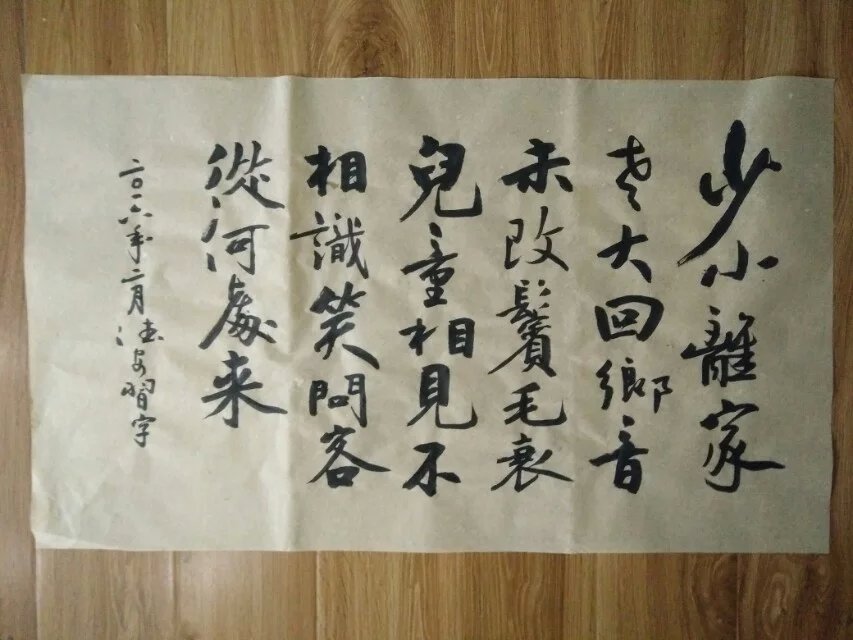 少小離家
老大回鄉音
未改鬢毛衰
兒童相見不
相識笑問客
從何處来
二〇一六年二月法安習字